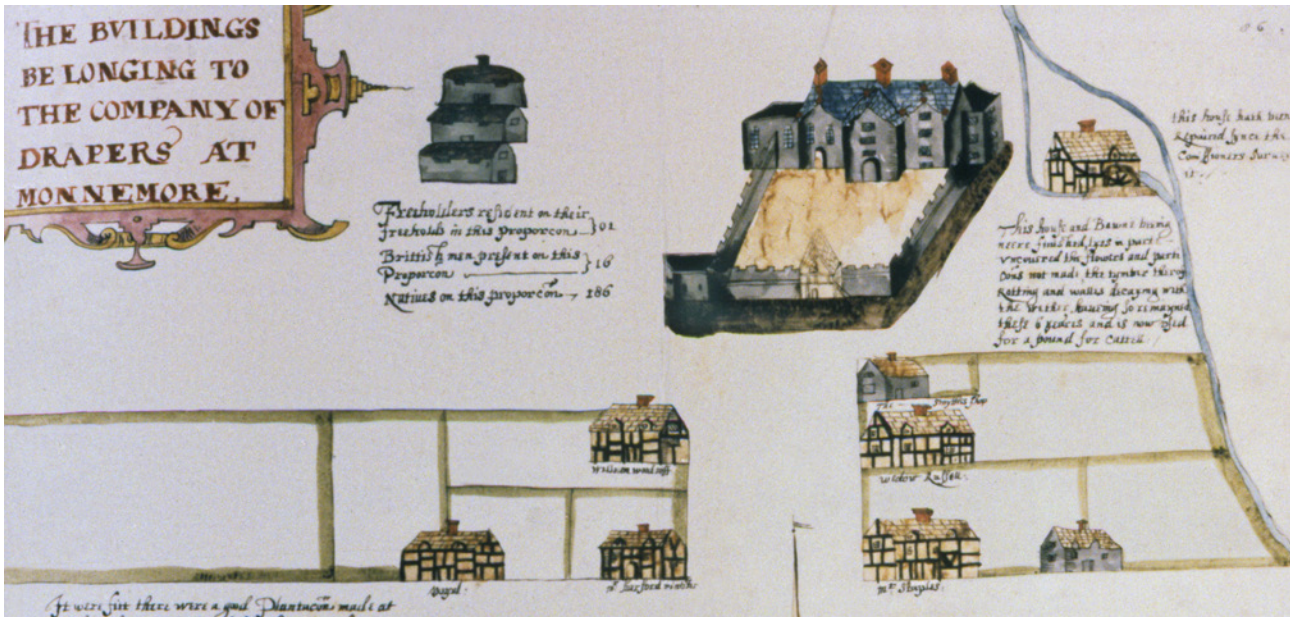 THE BVILDINGS
BE LONGING TO
THE COMPANY OF
DRAPERS AT
MONNEMORE.
Freeholders resident on their
freeholds in this proporcon } 01
Brittish men present on this
Proporcon } 16
Natiues on this proporcon, 186
86
this house hath been
Repaired synce the
This house and Bawne being
neere finished, lyes in parte
vncouered the floores and parti
cons not made, the tymber therof
Rotting and walles decaying with
the wether, haueing so remayned
these 6 yeares and is now vsed
for a pound for Cattell
William
The shop
Widow Russell
mr Staples
It were fitt there were a good Plantacon made at